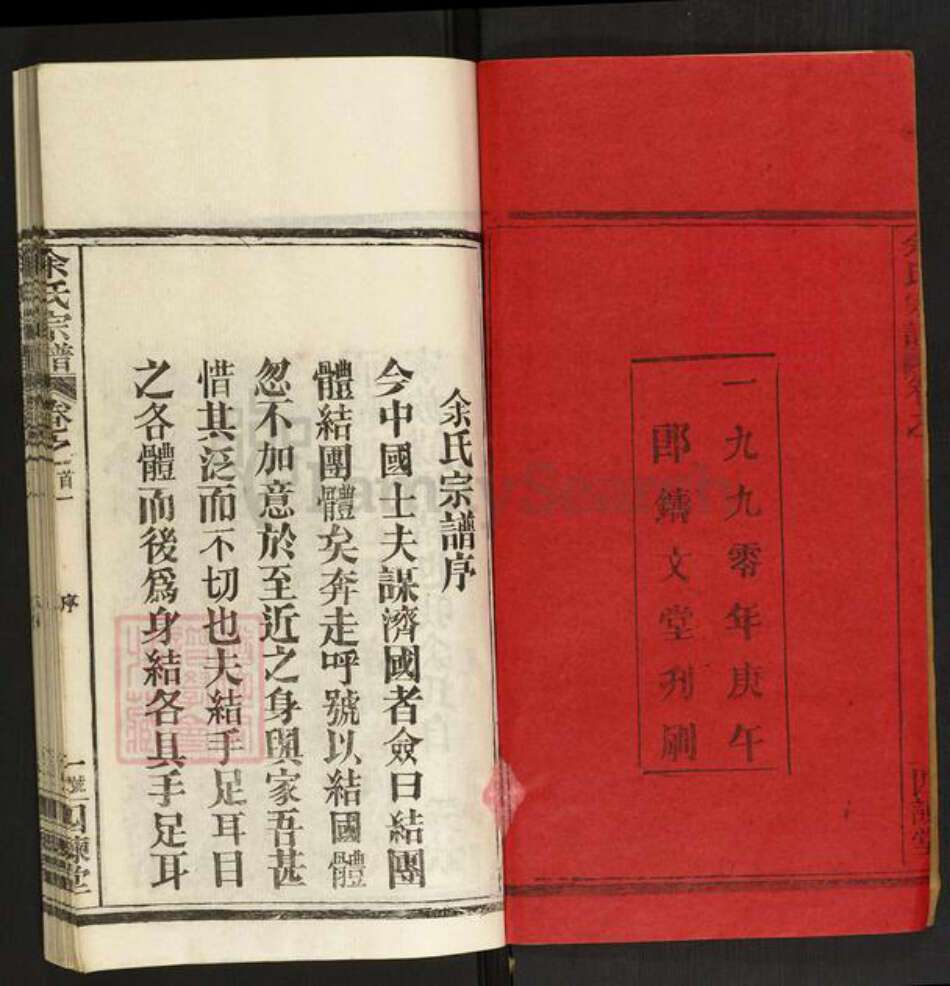 一九九零年庚午
郎鑄文堂刋刷
余氏宗譜序
今中國士夫謀濟國者僉曰結團
體結團體矣奔走呼號以結國體
忽不加意於至近之身與家吾甚
惜其泛而不切也夫結手足耳目
之各體而後爲身結各具手足耳
余氏宗譜 卷之首一 序 一號 四諫堂
FamilySearch